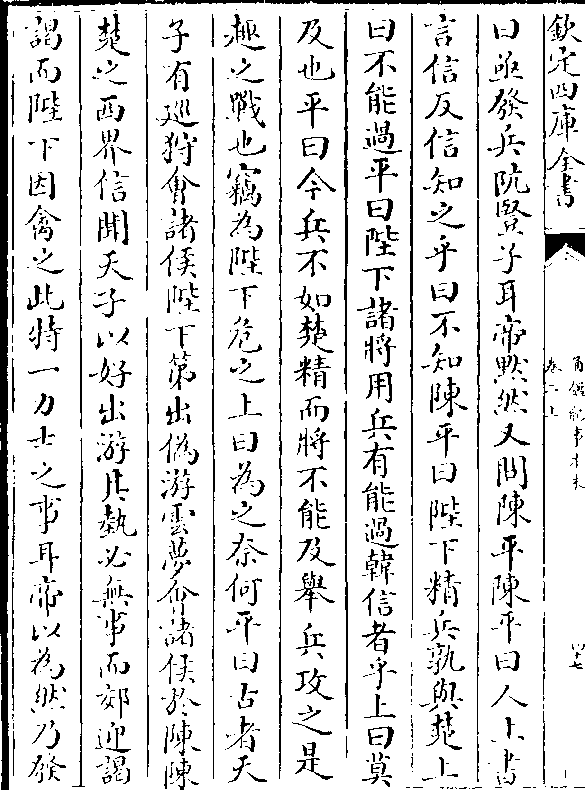 欽定四庫全書
通鑑紀事本末
卷二上
四七
曰亟發兵阬豎子耳帝默然又問陳平陳平曰人上書
言信反信知之乎曰不知陳平曰陛下精兵孰與楚上
曰不能過平曰陛下諸將用兵有能過韓信者乎上曰莫
及也平曰今兵不如楚精而將不能及舉兵攻之是
趣之戰也竊為陛下危之上曰為之奈何平曰古者天
子有廵狩會諸侯陛下第出偽游雲夢會諸侯於陳陳
楚之西界信聞天子以好出游其勢必無事而郊迎謁
謁而陛下因禽之此特一力士之事耳帝以為然乃發